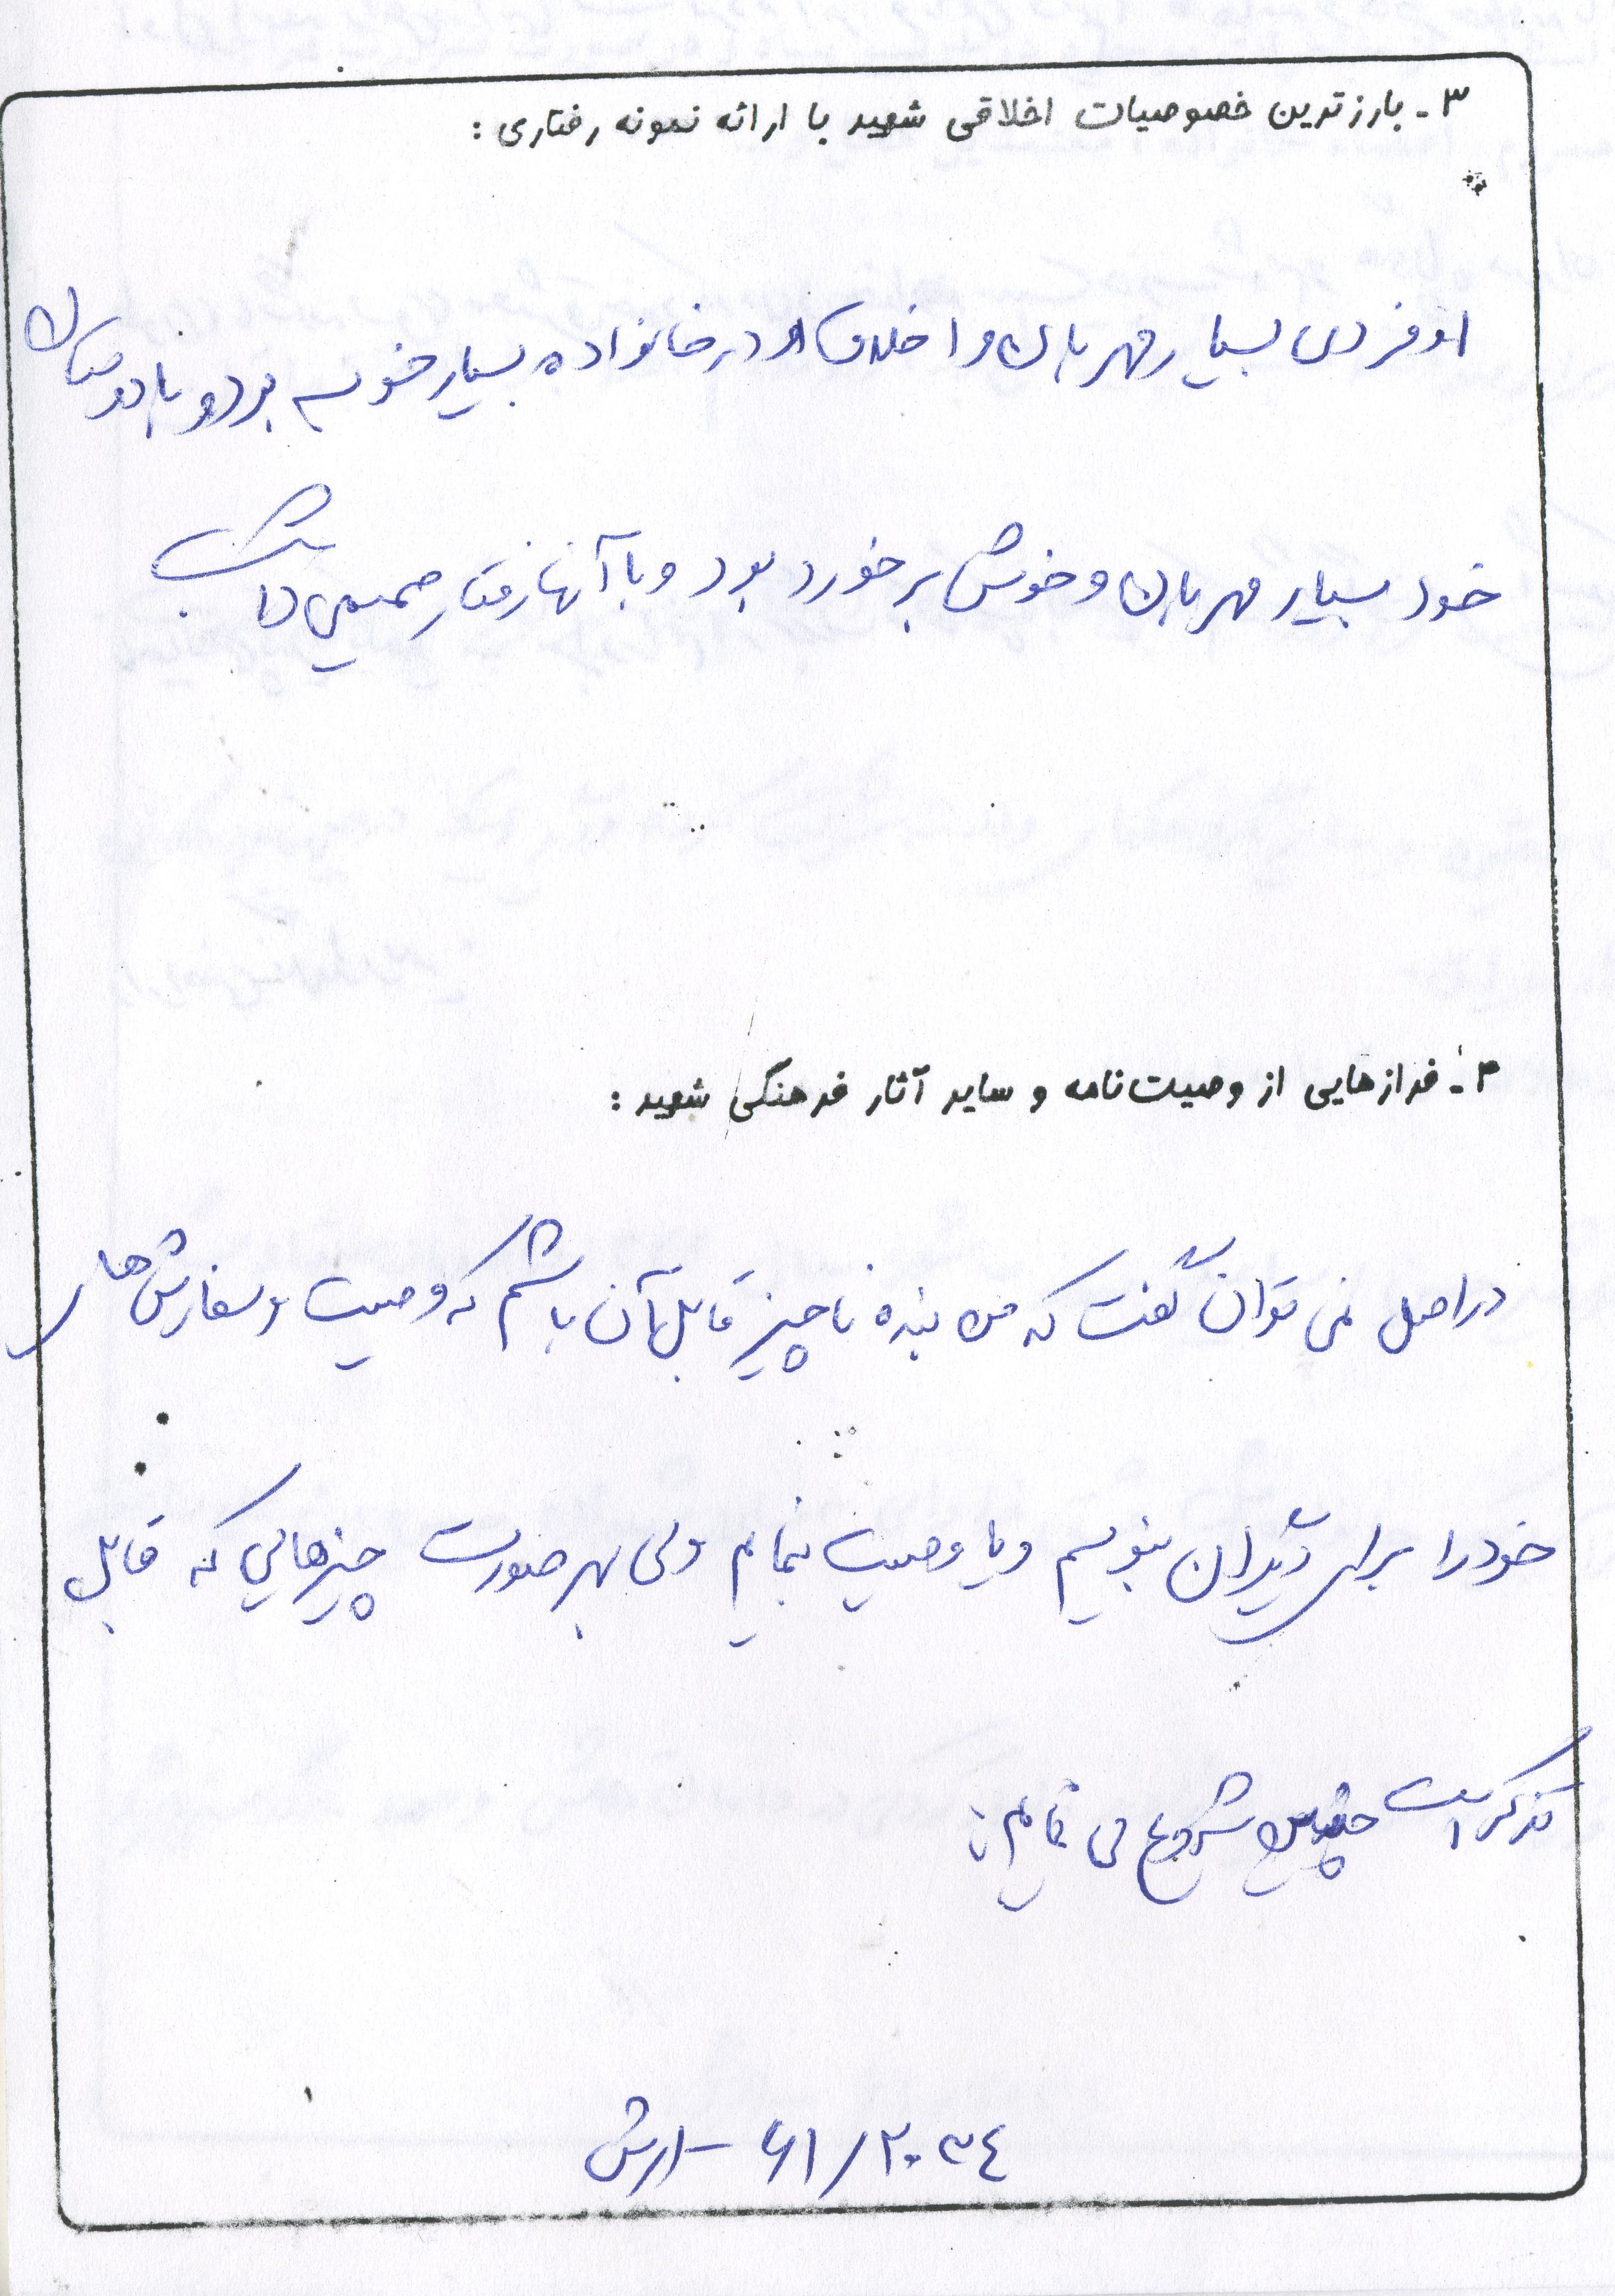 ۳ـ بارزترین خصوصیات اخلاقی شهید با ارائه نمونه رفتاری :
او فردی بسیار مهربان و اخلاق او در خانواده بسیار خوب بود و با دوستان
خود بسیار مهربان و خوش برخورد بود و با آنها رفتار صمیمی داشت
۴ـ فرازهایی از وصیت‌نامه و سایر آثار فرهنگی شهید :
در اصل نمی توان گفت که من بنده ناچیز قابل آن باشم که وصیت و سفارش های
خود را برای دیگران بنویسم و یا وصیت بنمایم ولی بهر صورت چیزهایی که قابل
تذکر است چنین شروع می نمایم :
۶۱/۲۰۳٤ - ارتش